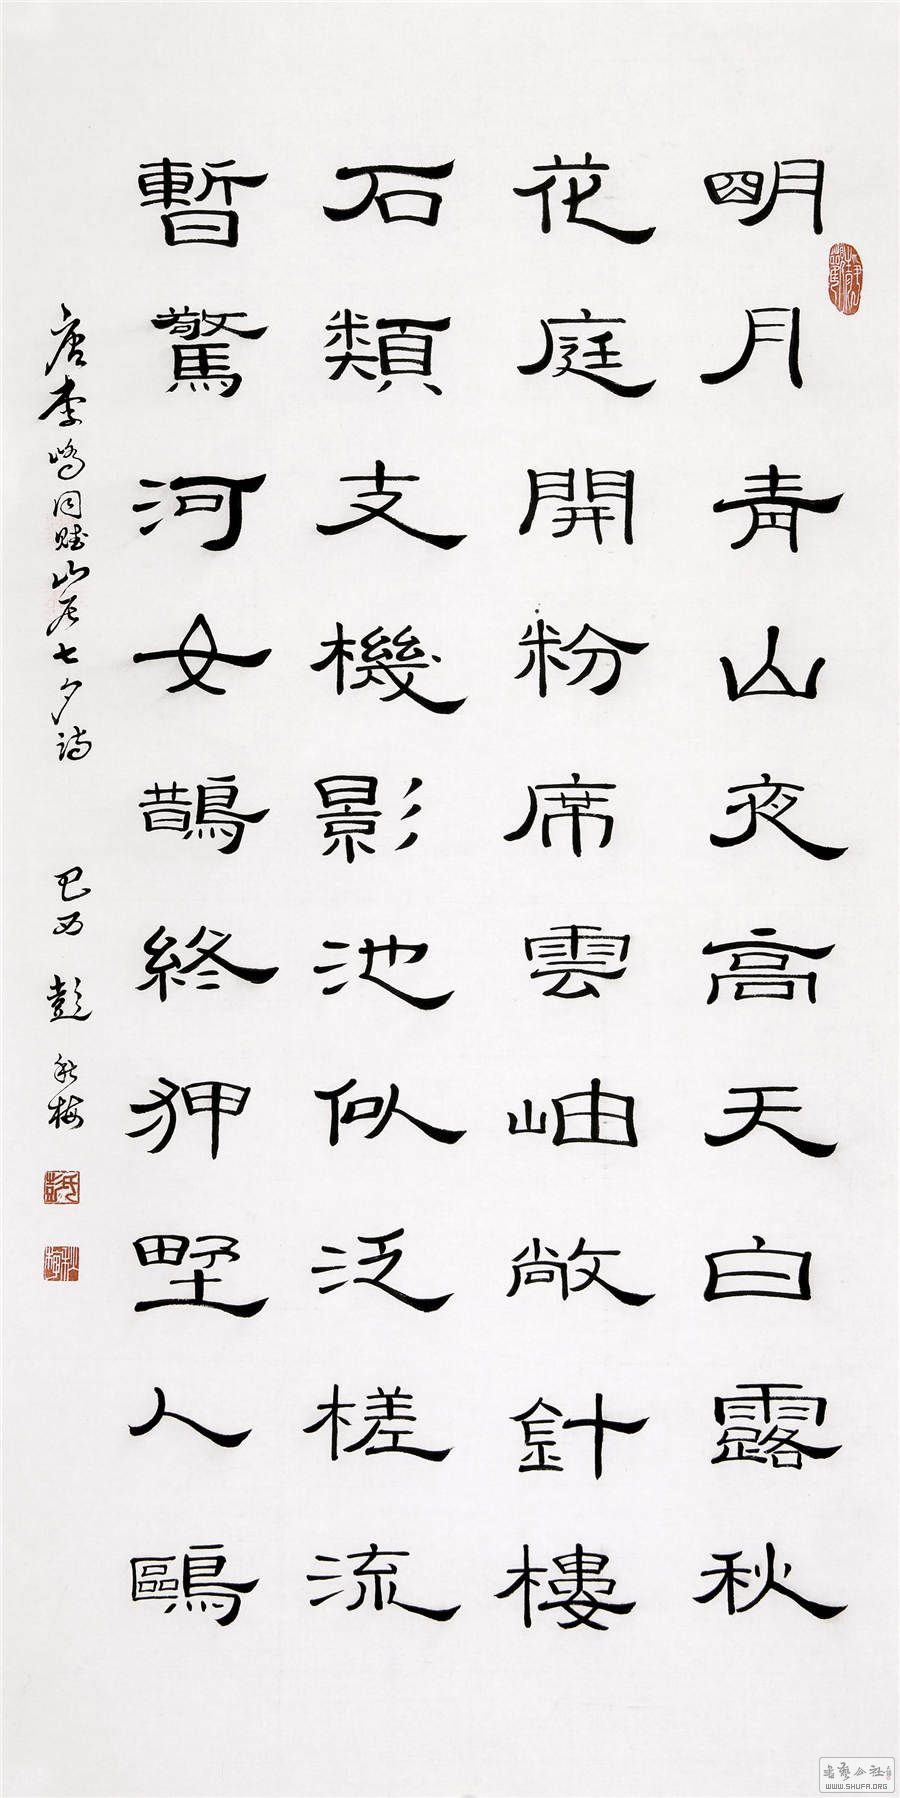 明月青山夜高天白露秋
花庭開粉席雲岫敞針樓
石類支機影池似泛槎流
暫驚河女鵲終狎野人鷗
唐李嶠同賦山居七夕詩 巴西 彭秋梅
彭氏
秋梅
書藝公社
WWW.SHUFA.ORG